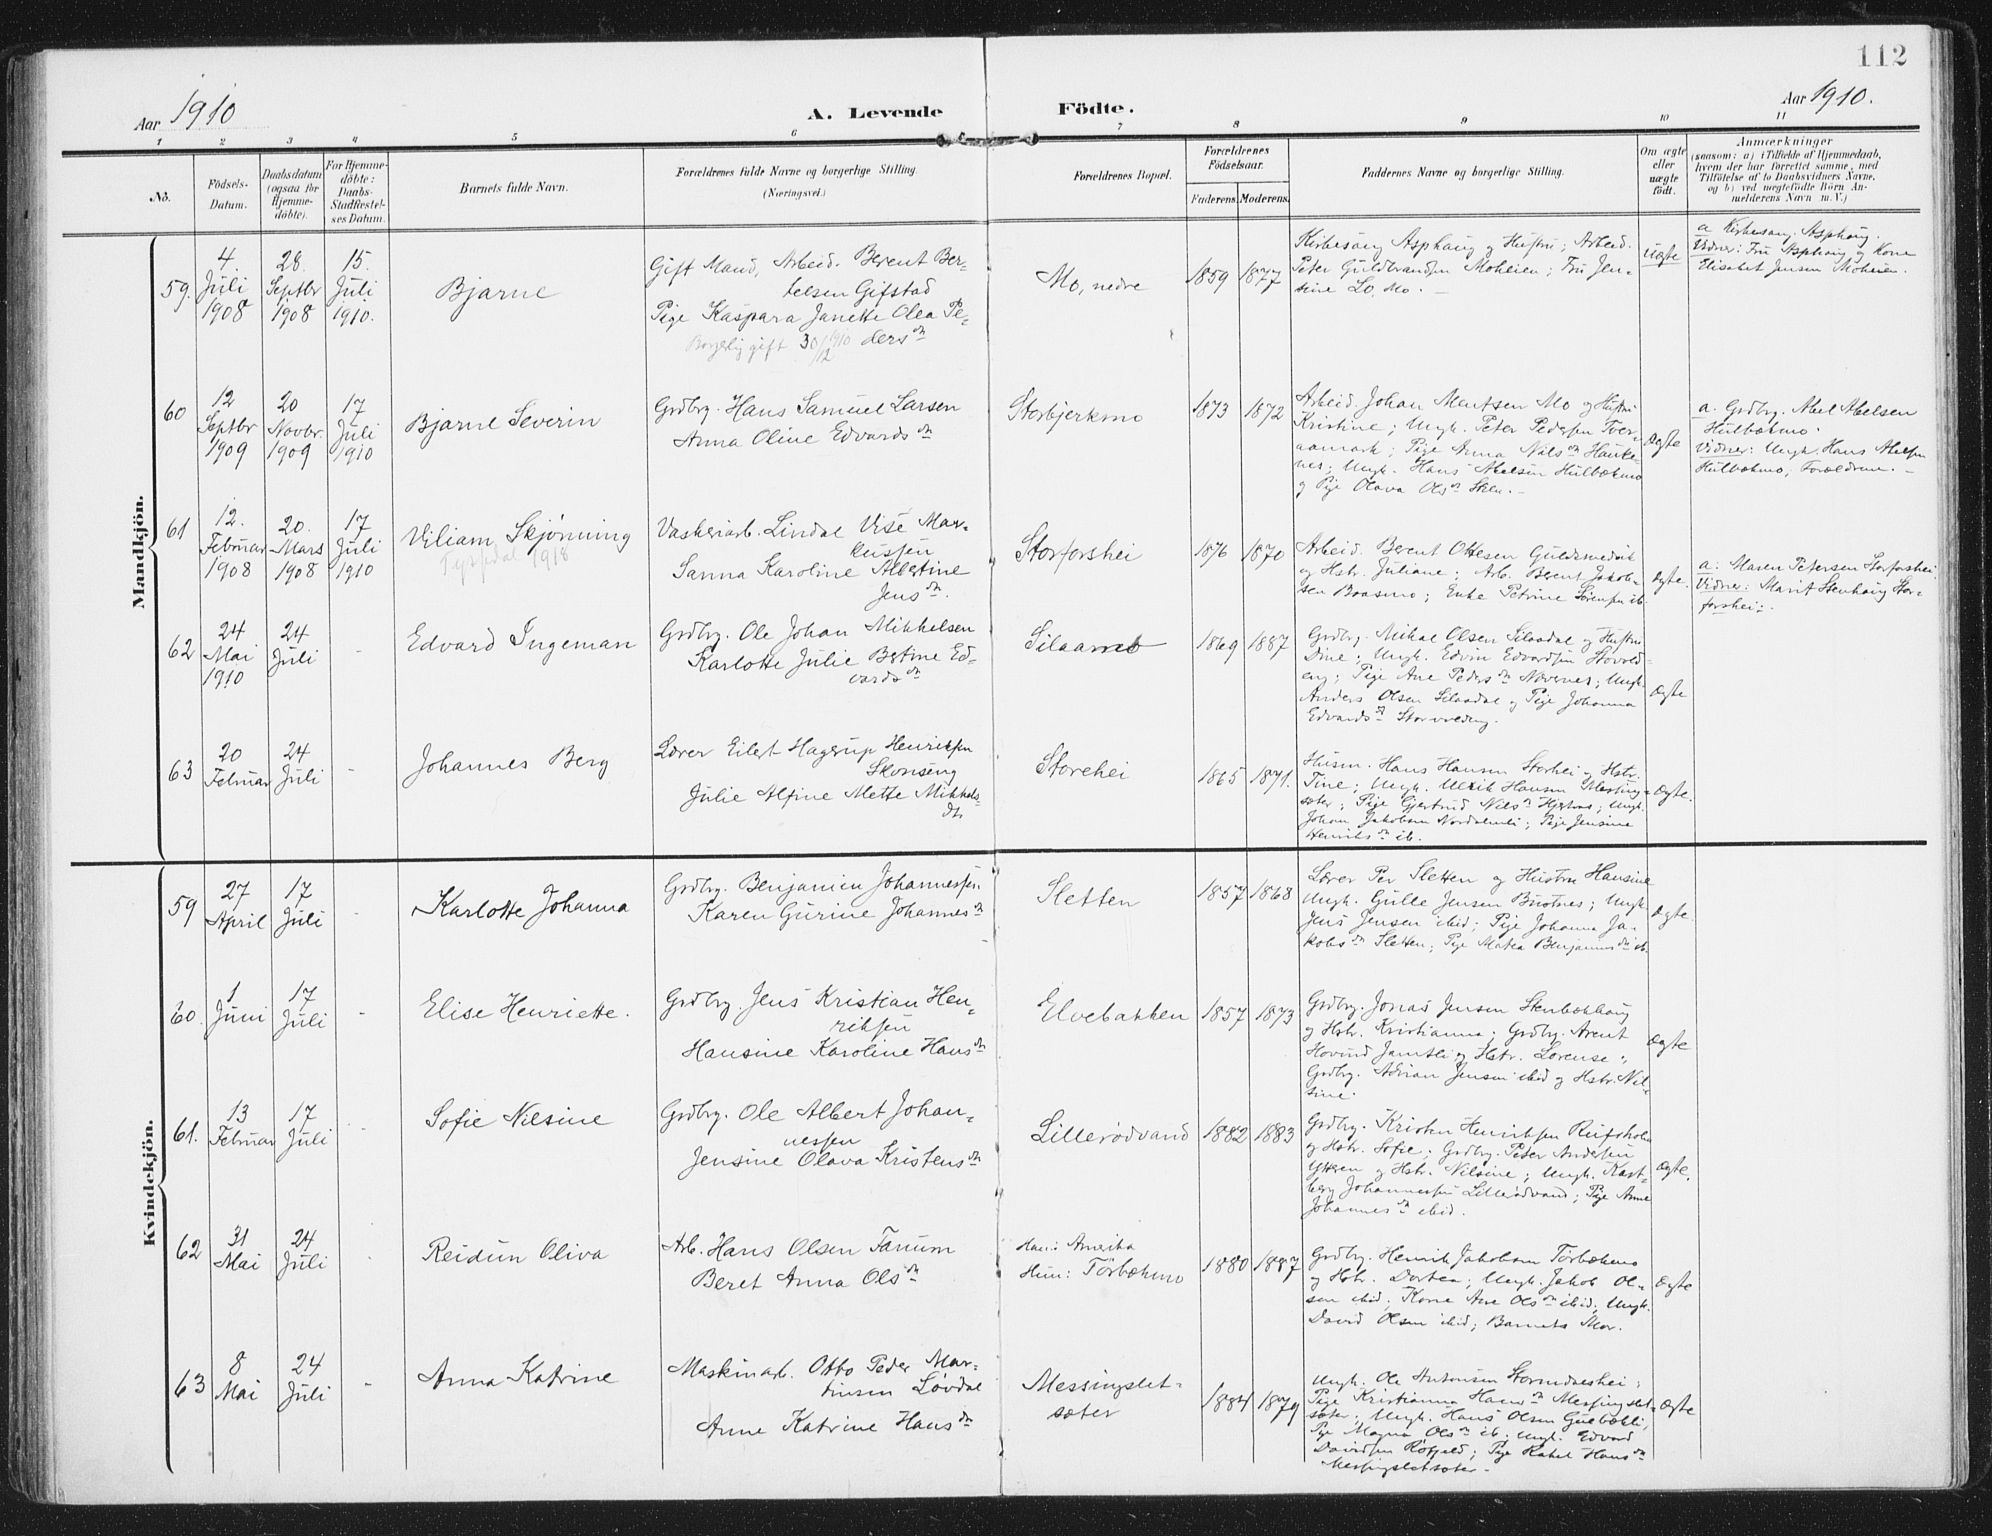 112
Aar 1910
A. Levende Födte.
Aar 1910.
1 2 3 4 5 6 7 8 9 10 11
No.
Födsels-Datum.
Daabsdatum (ogsaa for Hjemme-döbte).
For Hjemme-döbte: Daabs-Stadfæstel-ses Datum.
Barnets fulde Navn.
Forældrenes fulde Navne og borgerlige Stilling.
(Næringsvei.)
Forældrenes Bopæl.
Forældrenes Födselsaar.
Faderens. Moderens.
Faddernes Navne og borgerlige Stilling.
Om ægte eller uægte födt.
Anmærkninger
(saasom: a) i Tilfælde af Hjemmedaab,
hvem der har forrettet samme, med
Tilföielse af to Daabsvidners Navne,
og b) ved uægtefödte Börn An-
melderens Navn m. V.)
Mandkjön.
59.
4 Juli 1908
28. Septbr 1908
15. Juli 1910.
Bjarne
Gift Mand, Arbeid. Berent Ber-
telsen Gifstad
Pige Kaspara Janette Olea Pe-
ders dtr
Borgerlig gift 30/12 1910
Mo, nedre
1859 1877
Kirkesang Asphaug og Hustru; Arbeid.
Peter Guldbrandsen Moheien; Fru Jen-
sine Lo, Mo. -
Uægte
a Kirkesang. Asphaug.
Vidner: Fru Asphaug og Kone
Elisabet Jensen Moheien.
60
12 Septbr 1909
20 Novbr. 1909
17 Juli 1910
Bjarne Severin
Grdbr. Hans Samuel Larsen
Anna Oline Edvards dtr
Storbjerkmo
1873 1872
Arbeid. Johan Mentsen Mo og Hustru
Kristine; Ungk. Peter Pedersen Tver-
aamark; Pige Anna Nils dtr Hauke-
nes; Ungk. Hans Abelsen Hulbækmo
og Pige Olava Ols dtr
Ægte
a. Grdbr. Abel Abelsen
Hulbækmo.
Vidner: Ungk. Hans Abelsen
Hulbækmo, Forældrene. -
61
12. Februar 1908
20. Mars 1908
17 Juli 1910
Viliam Skjønning
1918
Vaskeriarb. Lindal Vise Mar-
kussen
Sanna Karoline Albertine
Jens dtr.
Storforshei
1876 1870
Arbeid. Berent Ottesen Guldsmedvik
og Hstr. Juliane; Arb. Berent Jakob-
sen Baasmo; Enke Petrine Sørensen ib.
Ægte.
a: Maren Petersen Storforshei.
Vidner: Marit Stenhaug Stor-
forshei.
62
24 Mai 1910
24 Juli
-
Edvard Ingeman
Grdbr. Ole Johan Mikkelsen
Karlotte Julie Betine Ed-
vards dtr
1869 1887
Grdbr. Mikal Olsen Silaadal og Hustru
Dine; Ungk. Edvin Edvardsen Storvold-
eng; Pige Ane Peders dtr Nævernes; Ungk.
Anders Olsen Silaadal og Pige Johanna
Edvards dtr Storvoldeng.
Ægte
63
20 Februar
24 Juli
-
Johannes Berg
Lærer Eilert Hagerup Henriksen
Skonseng
Julie Alfine Mette Mikkels-
dtr
Storehei
1865 1871.
Husm. Hans Hansen Storhei og Hstr.
Tine; Ungk. Ulrik Hansen Messing-
sæter; Pige Gjertrud Nils dtr; Ungk.
Johan Jakobsen; Pige Jensine
Henriks dtr ib.
Ægte.
Kvindekjön.
59
27 April
17 Juli
-
Karlotte Johanna
Grdbr. Benjamin Johannessen
Karen Gurine Johannes dtr
Sletten
1857 1868
Lærer Per Sletten og Hustru Hansine
Ungk. Gulle Jensen Bustnes; Ungk.
Jens Jensen ibid; Pige Johanna Ja-
kobs dtr Sletten; Pige Matea Benjamins dtr ib.
Ægte.
60.
1 Juni
17 Juli
-
Elise Henriette.
Grdbr. Jens Kristian Hen-
riksen
Hansine Karoline Hans dtr
Elvebakken
1857 1873
Grdbr. Jonas Jensen Stenbækhaug
og Hstr. Kristianna; Grdbr. Arent
Hovind Jamtli og Hstr. Lorense;
Grdbr. Adrian Jensen ibid og Hstr. Nil-
sine.
Ægte
61.
13 Februar
17 Juli
-
Sofie Nilsine
Grdbr. Ole Albert Johan-
nessen
Jensine Olava Kristens dtr
Lillerødvand
1882 1883
Grdbr. Kristen Henriksen Rufsholm
og Hstr. Sofie; Grdbr. Peter Andersen
Ytteren og Hstr. Nilsine; Ungk. Karl-
berg Johannessen Lillerødvand; Pige Anne
Johannes dtr ibid.
Ægte.
62
31 Mai
24 Juli
-
Reidun Oliva
Arb. Hans Olsen Fanum
Beret Anna Ols dtr
Han: Amerika
Hun: Törbækmo
1880 1887
Grdbr. Henrik Jakobsen Törbækmo
og Hstr. Dortea; Ungk. Jakob Ol-
sen ibid; Kone Ane Ols dtr ibid; Ungk.
David Olsen ibid; Barnets Mor.
Ægte
63
8 Mai
24 Juli
-
Anna Katrine
Maskinarb. Otto Peder Mar-
tinsen Løvdal
Anne Katrine Hans dtr
Messingslet-
sæter
1884 1879
Ungk. Ole Antonsen Stormdalshei;
Pige Kristianna Hans dtr Messingslet-
sæter; Ungk. Hans Olsen Gulbækli;
Pige Magna Ols dtr ib; Ungk. Edvard
Davidsen Røfjeld; Pige Rakel Hans dtr
Messingsletsæter -
Ægte